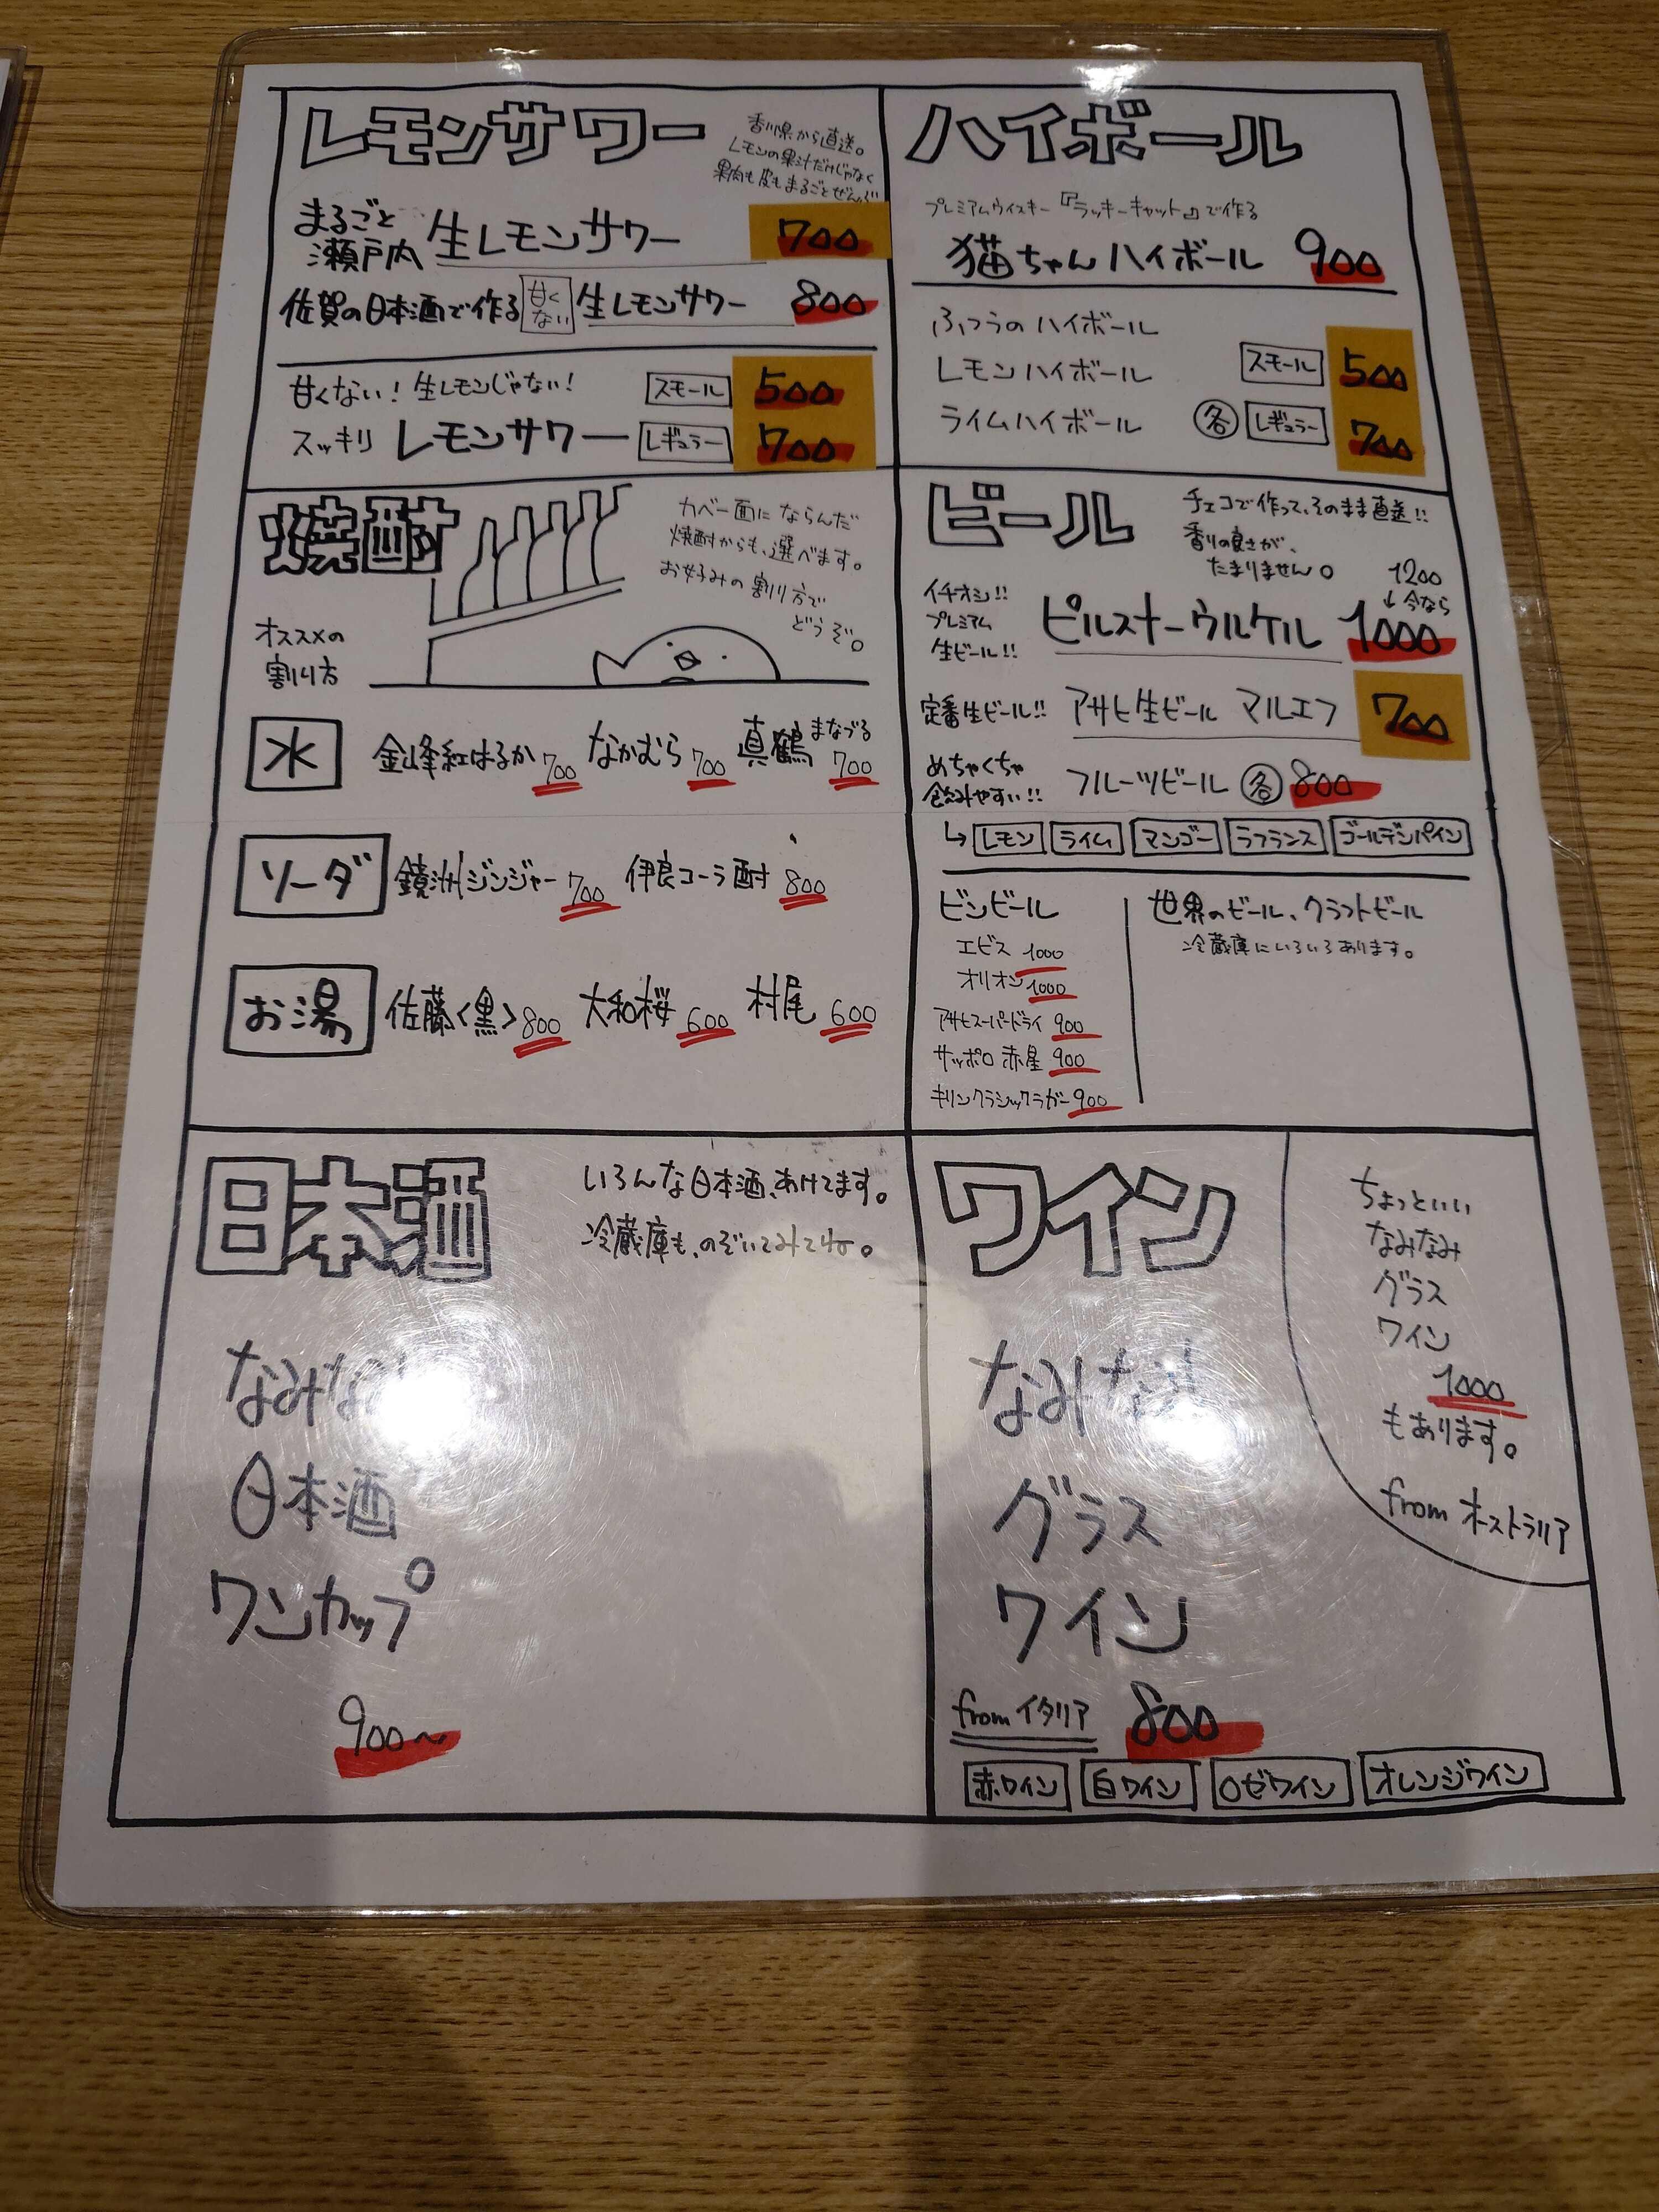 レモンサワー
香川県から直送。
レモンの果汁だけじゃなく
果肉も皮もまるごとぜんぶ
まるごと
瀬戸内 生レモンサワー 700
佐賀の日本酒で作る 甘くない 生レモンサワー 800
甘くない！生レモンじゃない！ スモール 500
スッキリ レモンサワー レギュラー 700
ハイボール
プレミアムウイスキー『ラッキーキャット』で作る
猫ちゃんハイボール 900
ふつうのハイボール
レモンハイボール スモール 500
ライムハイボール 各 レギュラー 700
焼酎
カバー面にならんだ
焼酎からも、選べます。
お好みの割り方で
どうぞ。
オススメの
割り方
水 金峰紅はるか 700 なかむら 700 真鶴 まなづる 700
ソーダ 鏡洲ジンジャー 700 伊良コーラ酎 800
お湯 佐藤<黒> 800 大和桜 600 村尾 600
ビール
チェコで作って、そのまま直送!!
香りの良さが、
たまりません。
イチオシ!!
プレミアム
生ビール!!
ピルスナーウルケル
1200
↓今なら
1000
定番生ビール!! アサヒ生ビール マルエフ 700
めちゃくちゃ
飲みやすい!! フルーツビール 各 800
↳ レモン ライム マンゴー ラフランス ゴールデンパイン
ビンビール
エビス 1000
オリオン 1000
アサヒスーパードライ 900
サッポロ 赤星 900
キリンクラシックラガー 900
世界のビール、クラフトビール
冷蔵庫にいろいろあります。
日本酒
いろんな日本酒、あけてます。
冷蔵庫も、のぞいてみてね。
日本酒
ワンカップ
900〜
ワイン
グラス
ワイン
from イタリア 800
赤ワイン 白ワイン ロゼワイン オレンジワイン
ちょっといい
なみなみ
グラス
ワイン
1000
もあります。
from オーストラリア